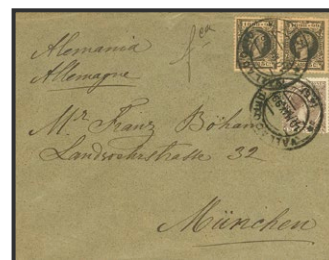 Alemania
Allemagne
Mr Franz Böham
Landwehrstrasse 32
München